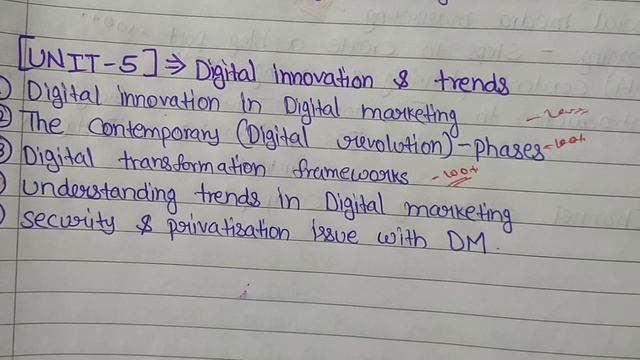 [UNIT-5] ⇒ Digital innovation & trends
① Digital innovation in Digital marketing
② The Contemporary (Digital revolution)-phases -100%
③ Digital transformation frameworks -100%
Understanding trends in Digital marketing
security & privatisation issue with DM.